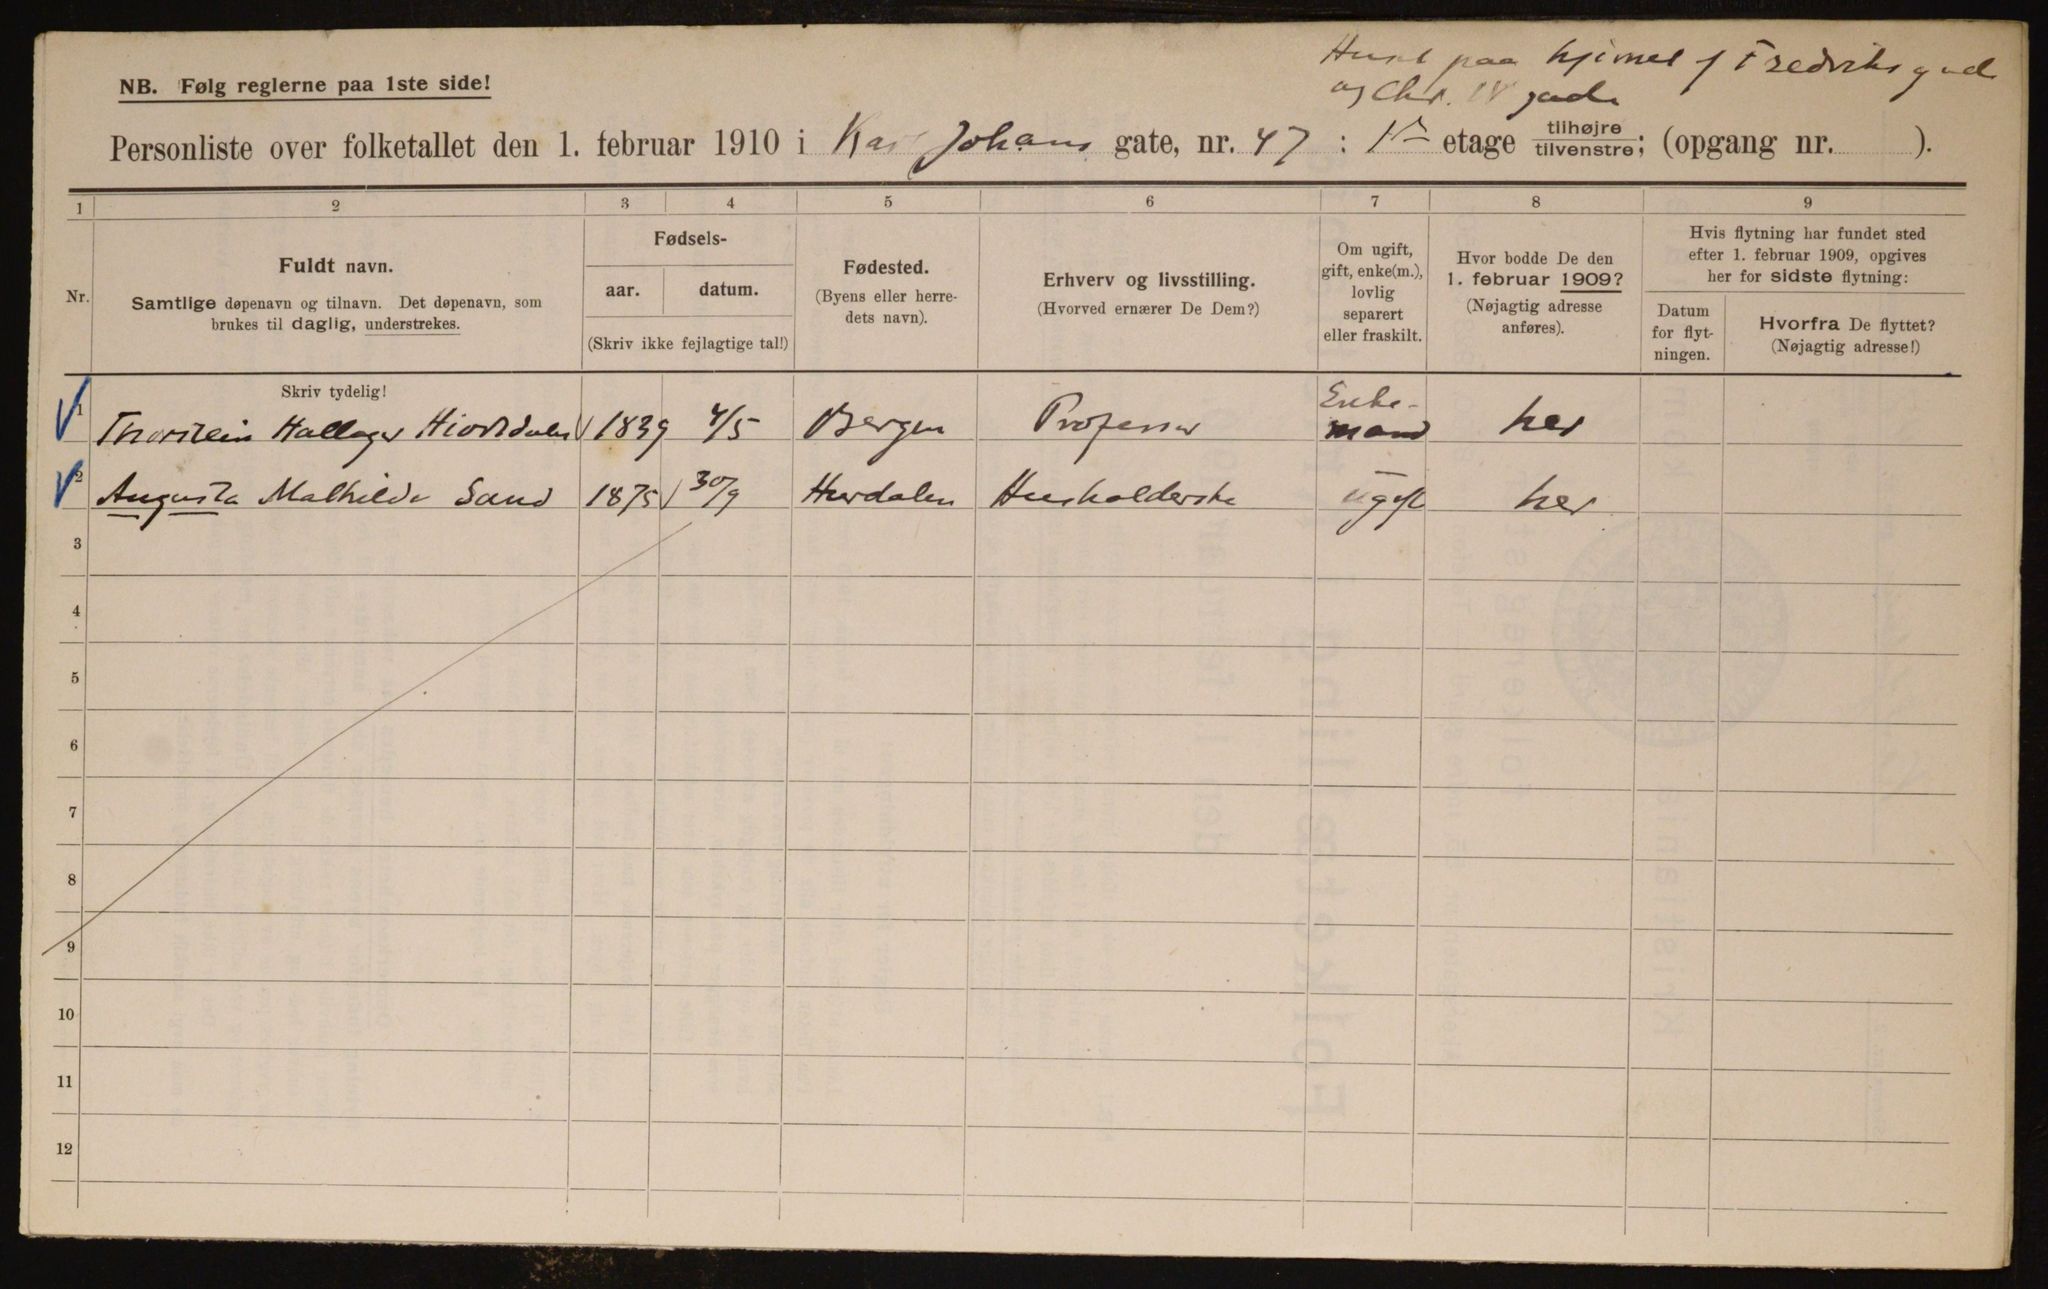 Huset paa hjørnet f Fredriks gade
og Chr. IV gade
NB. Følg reglerne paa 1ste side!
Personliste over folketallet den 1. februar 1910 i Karl Johans gate, nr. 47 : 1ste etage tilhøjre tilvenstre; (opgang nr. ).
1 2 3 4 5 6 7 8 9
Nr.
Fuldt navn.
Samtlige døpenavn og tilnavn. Det døpenavn, som
brukes til daglig, understrekes.
Fødsels-
aar. datum.
(Skriv ikke fejlagtige tal!)
Fødested.
(Byens eller herre-
dets navn).
Erhverv og livsstilling.
(Hvorved ernærer De Dem?)
Om ugift,
gift, enke(m.),
lovlig
separert
eller fraskilt.
Hvor bodde De den
1. februar 1909?
(Nøjagtig adresse
anføres).
Hvis flytning har fundet sted
efter 1. februar 1909, opgives
her for sidste flytning:
Datum
for flyt-
ningen.
Hvorfra De flyttet?
(Nøjagtig adresse!)
Skriv tydelig!
1 Thorstein Hallager Hiortdahl 1839 4/5 Bergen Professor Enke-
mand her
2 Augusta Mathilde Sand 1875 30/9 Hurdalen Husholderske ugift her
3
4
5
6
7
8
9
10
11
12